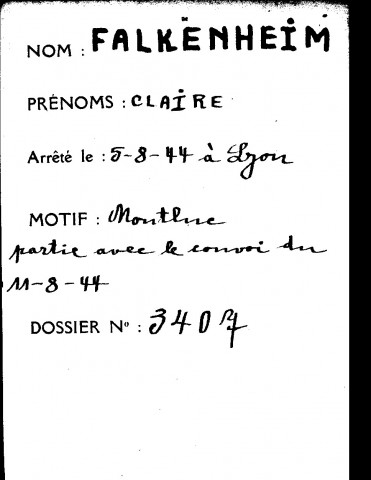 NOM : FALKENHEIM
PRÉNOMS : CLAIRE
Arrêté le : 5-8-44 à Lyon
MOTIF : Montluc
partie avec le convoi du
11-8-44
DOSSIER Nº : 3407